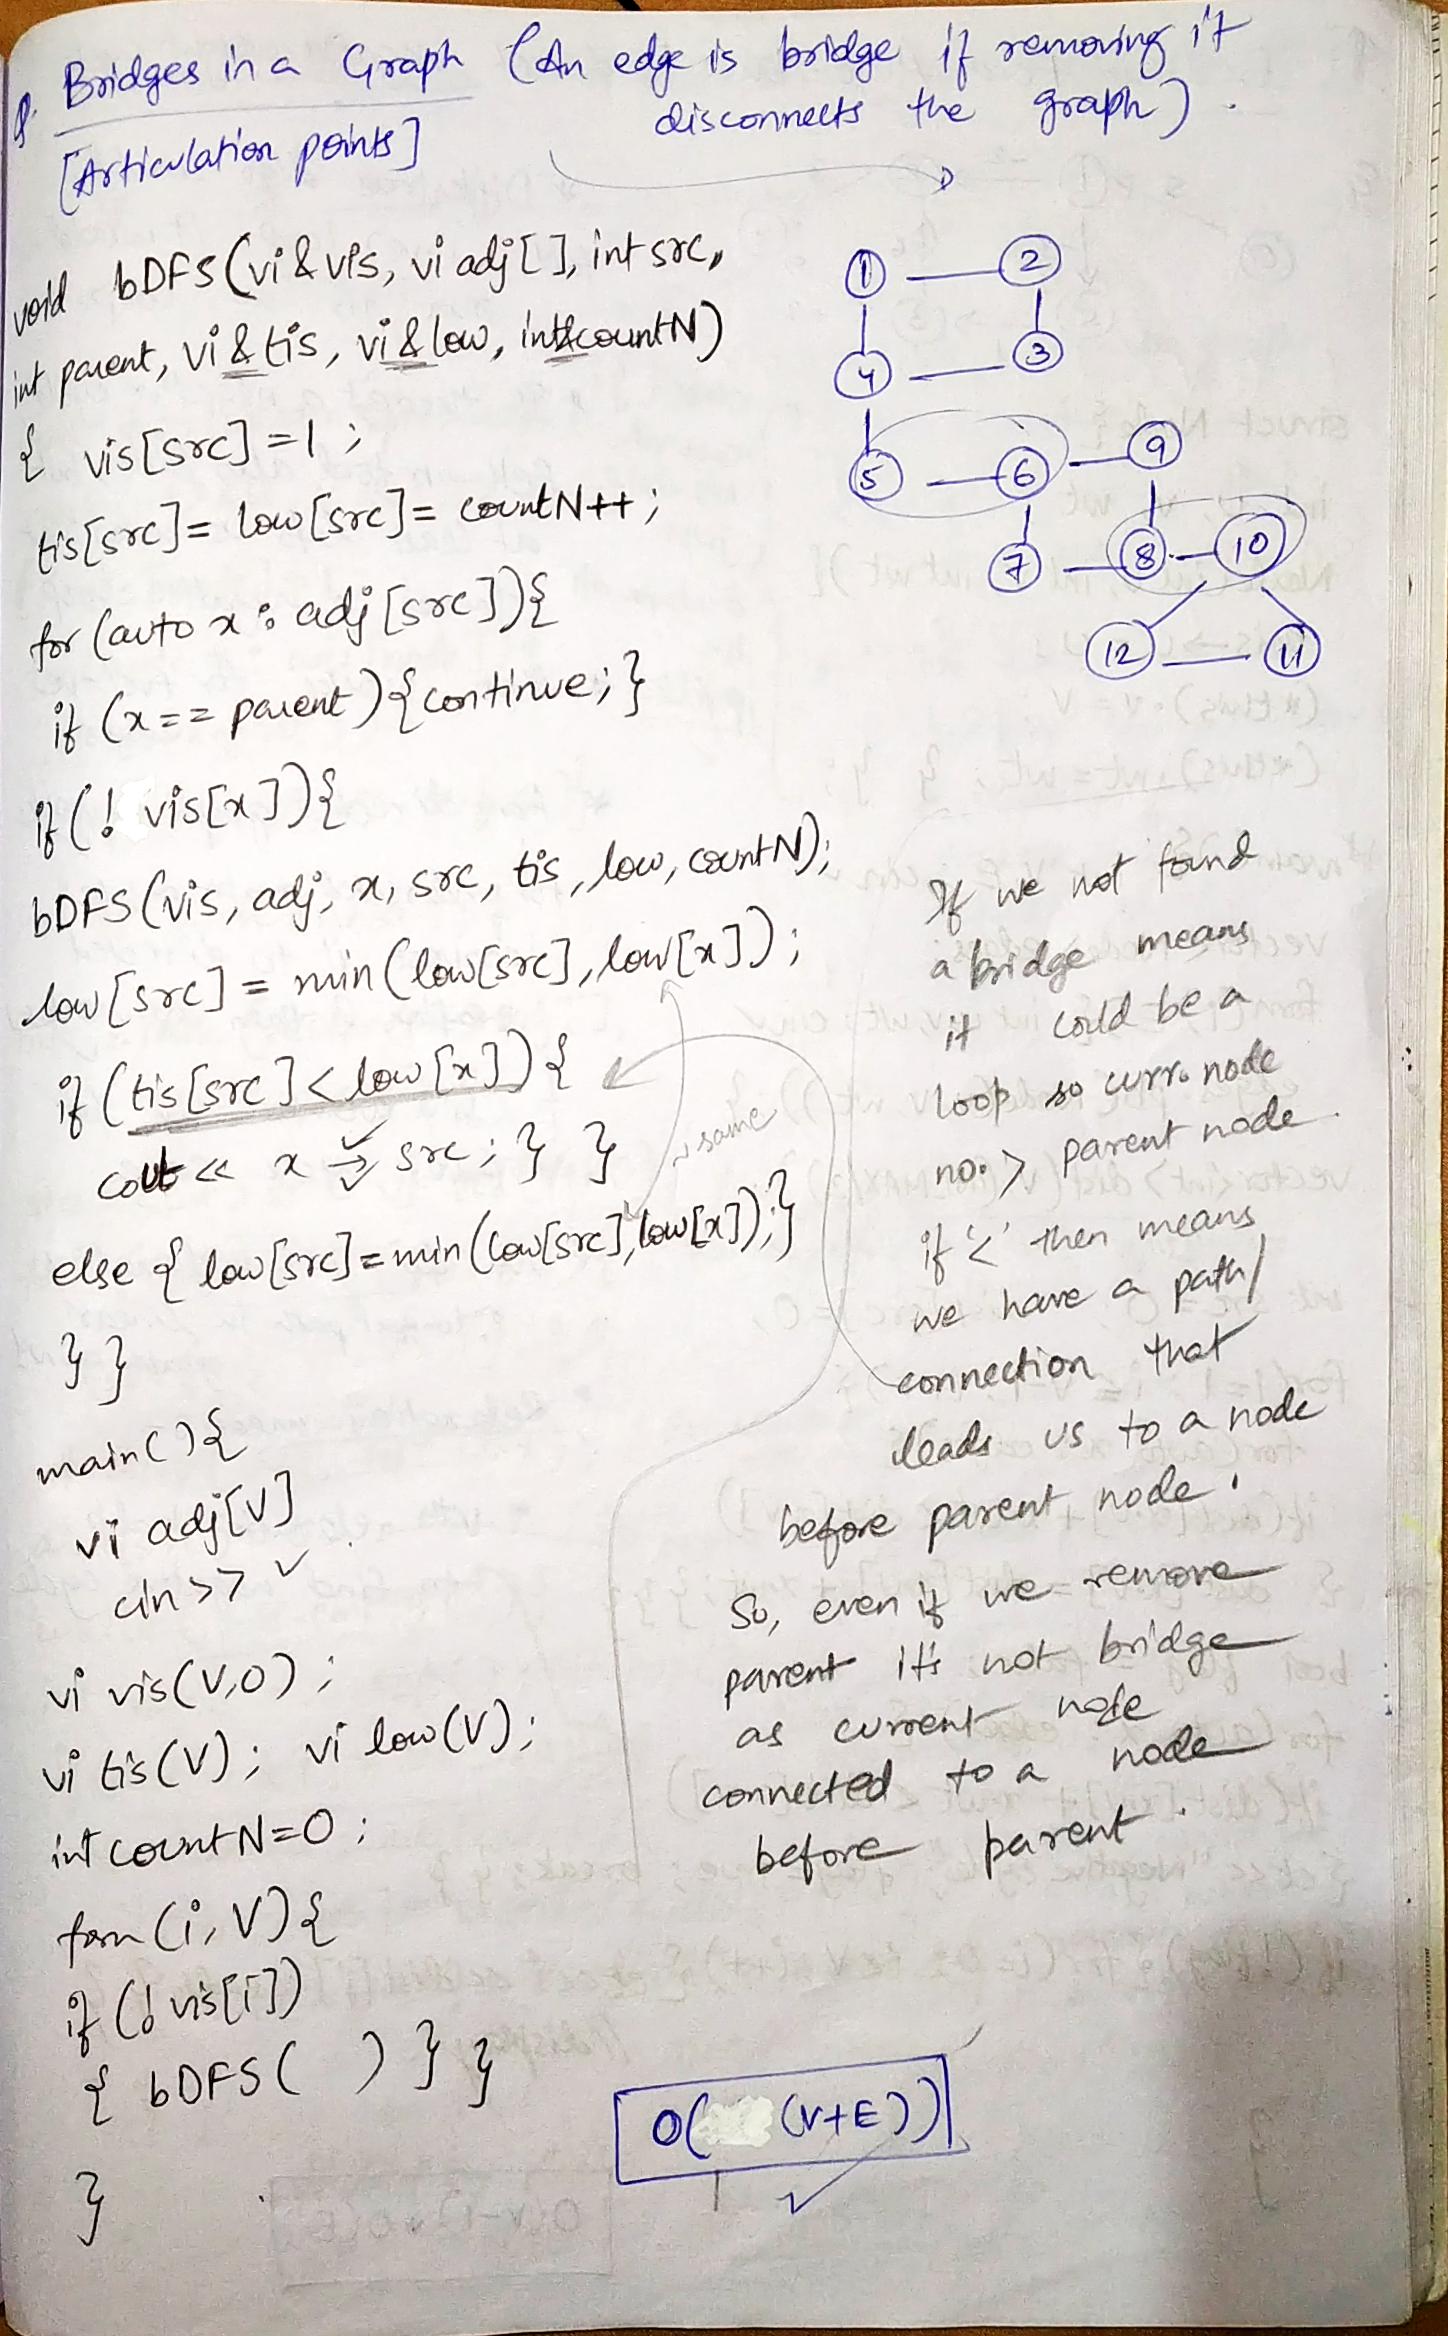 Q. Bridges in a Graph (An edge is bridge if removing it
disconnects the graph).
[Articulation points]
void bDFS(vi &vis, vi adj[], int src,
int parent, vi & tis, vi & low, int&countN)
{ vis[src]=1;
tis[src]= low[src]= countN++;
for (auto x : adj[src]){
if (x== parent){continue;}
if(! vis[x]){
bDFS(vis, adj, x, src, tis, low, countN);
low[src] = min(low[src], low[x]);
if (tis[src]< low[x]){
cout << x → src; } }
else { low[src]=min(low[src], low[x]);}
} }
same
main(){
vi adj[V]
cin>> ✓
vi vis(V,0);
vi tis(V); vi low(V);
int countN=0;
forn(i, V){
if (! vis[i])
{ bDFS( ) } }
}
1 2
4 3
5 6 9
7 8 10
12 11
If we not found
a bridge means
it could be a
loop so curr. node
no. > parent node
if '<' then means
we have a path/
connection that
leads us to a node
before parent node.
So, even if we remove
parent it's not bridge
as current node
connected to a node
before parent.
O( (V+E))